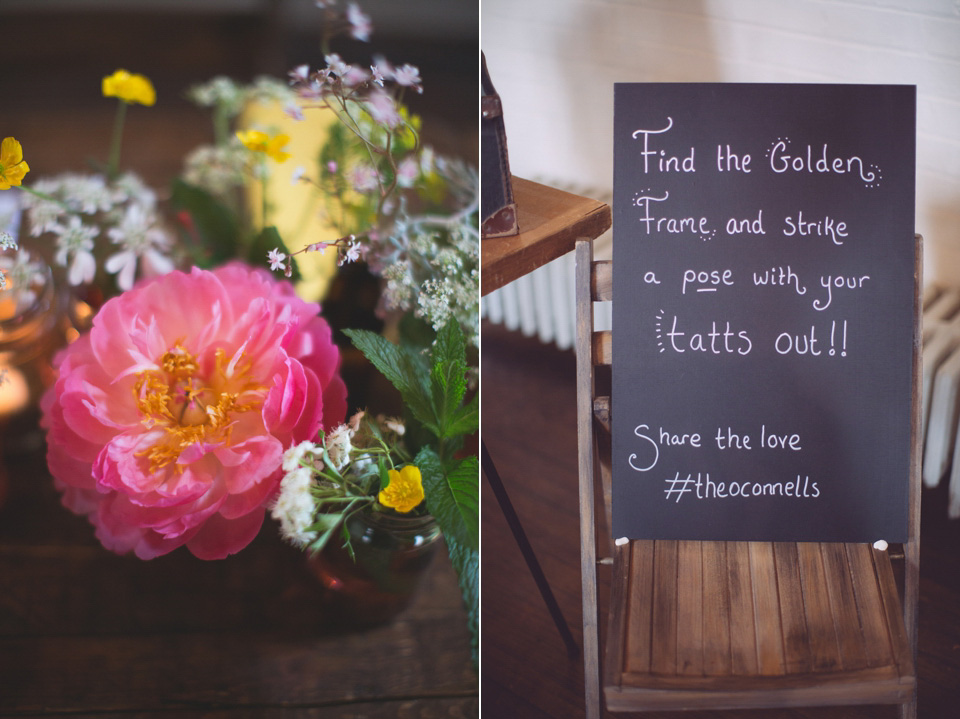 Find the Golden
Frame and strike
a pose with your
tatts out!!
Share the love
#theoconnells